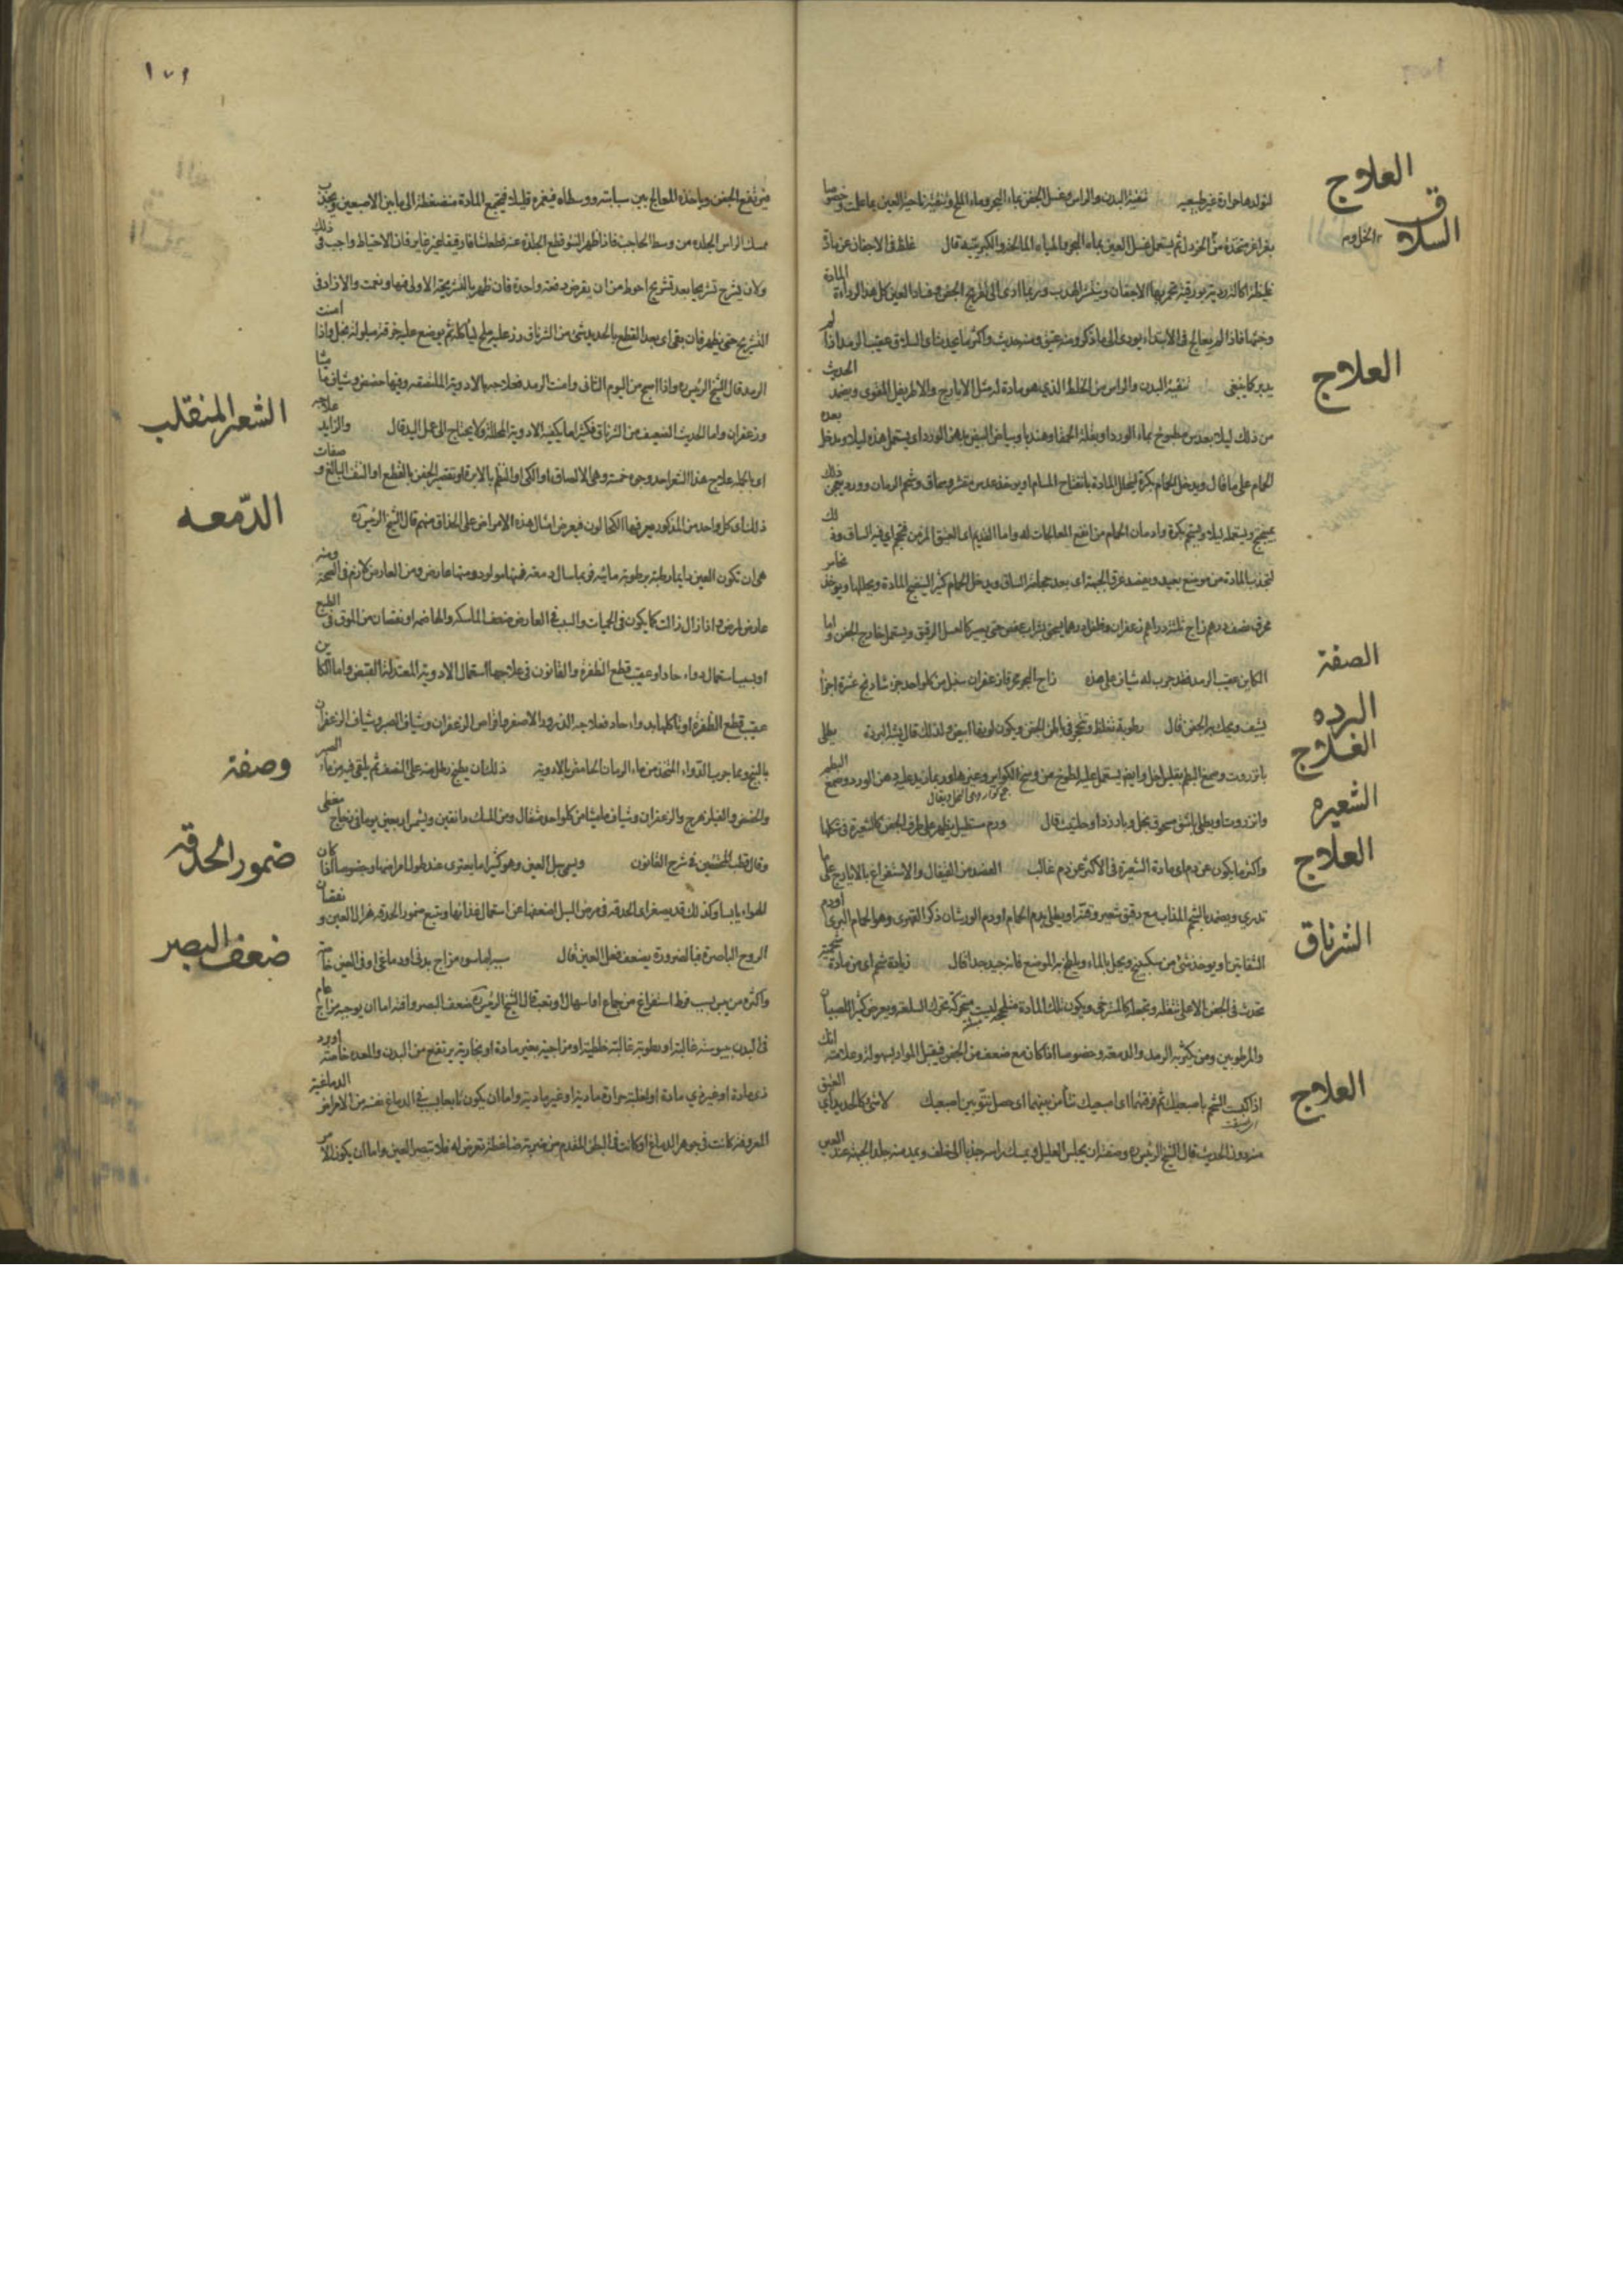 العلاج
السلاق
لتولدها حرارة غير طبيعيه تنقية البدن والراس وغسل الجفن بماء البحر وماء الملح وتنقية ناحية العين بما علمت وخصوصا
بغراغر متخذة من الخردل ثم يستعمل غسل العين بماء البحر والمياه المالحة والكبريتيه قال غلظ فى الاجفان عن مادة
غليظة اكالة رديه بورقية تحمر بها الاجفان وينتثر الهدب وربما ادى الى تقرح الجفن وفساد العين كل هذا لرداءة المادة
وخبثها فاذا لم يعالج فى الابتداء يودى الى ما ذكر ومنه عتيق ومنه حديث واكثر ما يحدث اى السلاق عقيب الرمد اذا لم
العلاج
يدبر كما ينبغى تنقية البدن والراس من الخلط الذى هو مادة له مثل الايارج والاطريفل المقوى ويضمد الحديث
من ذلك ليلا بعدس مطبوخ بماء الورد او بقلة الحمقا وهندبا وبياض البيض بدهن الورد اى يستعمل هذه ليلا ويدخل بعده
الحمام على ما قال ويدخل الحمام بكرة ليتحلل المادة بانفتاح المسام او يوخذ عدس مقشر وسماق وشحم الرمان وورد يعجن ذلك
بميبختج ويستعمله ليلا ويستحم بكرة وادمان الحمام من انفع المعالجات له واما القديم اى العتيق المزمن فتحجم اى فيه الساق
لتجذب المادة من موضع بعيد ويفصد عرق الجبهة اى بعد حجامة الساق ويدخل الحمام كثيرا لينضج المادة ويحللها ويوخذ نحاس
محرق نصف درهم زاج ثلثة دراهم زعفران وفلفل درهما يسحق بشراب عفص حتى يصير كالعسل الرقيق ويستعمل خارج الجفن واما
الصفة
الكاين عقيب الرمد فقد جرب له شياف على هذه زاج البحر محرقا زعفران سنبل من كل واحد جزء شادنج عشرة اجزا
البرده
يشيف ويحك به الجفن قال رطوبة تغلظ وتتحجر فى باطن الجفن ويكون لونها ابيض ولذلك قال يشبه البردة يطلى
العلاج
بانزروت وصمغ البطم بقليل خل وايضا يستعمل عليه لطوخ من وسخ الكواير وغيرها وربما زيد عليه دهن الورد وصمغ البطم
الشعيره
وانزروت او يطلى باشق مسحوق بخل وبارزد او حلتيت قال ورم مستطيل يظهر على طرف الجفن كالشعيرة فى شكلها
العلاج
واكثر ما يكون عن دم اى مادة الشعيرة فى الاكثر عن دم غالب الفصد من القيفال والاستفراغ بالايارج على ما
تدرى ويضمد بالشحم المذاب مع دقيق شعير وقنة او يطلى بدم الحمام او دم الورشان ذكر القهرى وهو الحمام البرى او دم
الشرناق
الشفانين او يوخذ شئ من سكبينج ويحل بالماء ويلطخ به الموضع فانه جيد جدا قال زيادة شحم اى من مادة شحمية
تحدث فى الجفن الاعلى تثقله وتجعله كالمسترخى ويكون تلك المادة ملتحجة ليست متحركة تحرك السلعة ويعرض كثيرا للصبيان
والمرطوبين ومن يكثر به الرمد والدمعة وخصوصا اذا كان مع ضعف من الجفن فيقبل المواد بسهولة وعلامته انك
العلاج
اذا كبست الشحم باصبعيك ثم فرقتهما اى اصبعيك نتأ من بينهما اى حصل نتو بين اصبعيك لا شئ كالحديد اى العتيق
منه دون الحديث قال الشيخ الرئيس وصفته ان يجلس العليل ويمسك راسه جذبا الى خلف ويمد منه جلد الجبهة عند العين
١٧٩
فيرتفع الجفن وياخذه المعالج بين سبابته ووسطاه فيغمزه قليلا فيجتمع المادة منضغطة الى ما بين الاصبعين ويجذب
ممسك الراس الجلدة من وسط الحاجب فاذا ظهر النتو قطع الجلدة عنه قطعا شاقا رقيقا غير غاير فان الاحتياط واجب فى ذلك
ولان يشرح تشريحا بعد تشريح احوط من ان يغرض دفعة واحدة فان ظهر بالتشريحة الاولى فيها ونعمت والا زاد فى
التشريح حتى يظهر فان بقى اى بعد القطع بالحديد شئ من الشرناق ذر عليه ملح لياكله ثم يوضع عليه خرقة مبلولة بخل واذا امنت
الرمد قال الشيخ الرئيس واذا اصبح من اليوم الثانى وامنت الرمد فعلاجه بالادوية الملتصقه وفيها حضض وشياف ماميثا
الشعر المنقلب
وزعفران واما الحديث الضعيف من الشرناق فكثيرا ما يكفيه الادوية المحللة ولا يحتاج الى عمل اليد قال والزايد علاجه
اى بالجملة علاج هذا الشعر احد وجوه خمسة وهى الالصاق او الكى او النظم بالابرة او تقصير الجفن بالقطع او النتف البالغ وصفات
الدّمعه
ذلك اى كل واحد من المذكور يعرفها الكحالون فيعرض امثال هذه الامراض على الحذاق منهم قال الشيخ الرئيس
هى ان تكون العين دايما رطبة برطوبة مائيه فربما سال دمعة فمنها مولود ومنها عارض ومن العارض لازم فى الصحة ومنه
عارض لمرض اذا زال زالت كما يكون فى الحميات والسبب فى العارض ضعف الماسكه والهاضمه او نقصان من الموق فى الطبع
او بسبب استعمال دواء حاد او عقيب قطع الظفرة والقانون فى علاجها استعمال الادوية المعتدلة القبض واما الكاين
عقيب قطع الظفرة او تاكلها بدواء حاد فعلاجه الذرور الاصفر واقراص الزعفران وشياف الصبر وشياف الزعفران
وصفة
بالبنج ومما جرب الدواء المتخذ من ماء الرمان الحامض بالادوية ذلك ان يطبخ رطل منه على النصف ثم يلقى فيه من ماء الصبر
والحضض والفيلزهرج والزعفران وشياف ماميثا من كل واحد مثقال ومن المسك دانقين ويشمس اربعين يوما فى زجاج مغطى
ضمور الحدقه
وقال قطب المحققين فى شرح القانون ويسمى سل العين وهو كثيرا ما يعترى عند طول امراضها وخصوصا اذا كان
الهواء يابسا وكذلك قد يصغر اى الحدقه فى مرض السبل لضعفها عن استعمال غذائها ويتبع ضمور الحدقه هزال العين ونقصان
ضعف البصر
الروح الباصرة فبالضرورة يضعف فعل العين قال سببه اما سوء مزاج بدنى او دماغى او فى العين خاصة
واكثره من يبس بسبب فرط استفراغ من جماع او اسهال او تعب قال الشيخ الرئيس ضعف البصر وافته اما ان يوجبه مزاج عام
فى البدن يبوسة غالبة او رطوبة غالبة خلطية او مزاجية بغير مادة او بخارية يرتفع من البدن والمعده خاصة او برد
ذى مادة او غير ذى مادة او لغلبة حرارة مادية او غير مادية واما ان يكون تابعا لسبب فى الدماغ نفسه من الامراض الدماغية
المعروفة كانت فى جوهر الدماغ او كانت فى البطن المقدم من ضربة ضاغطة تعرض له فلا تبصر العين واما ان يكون لامر